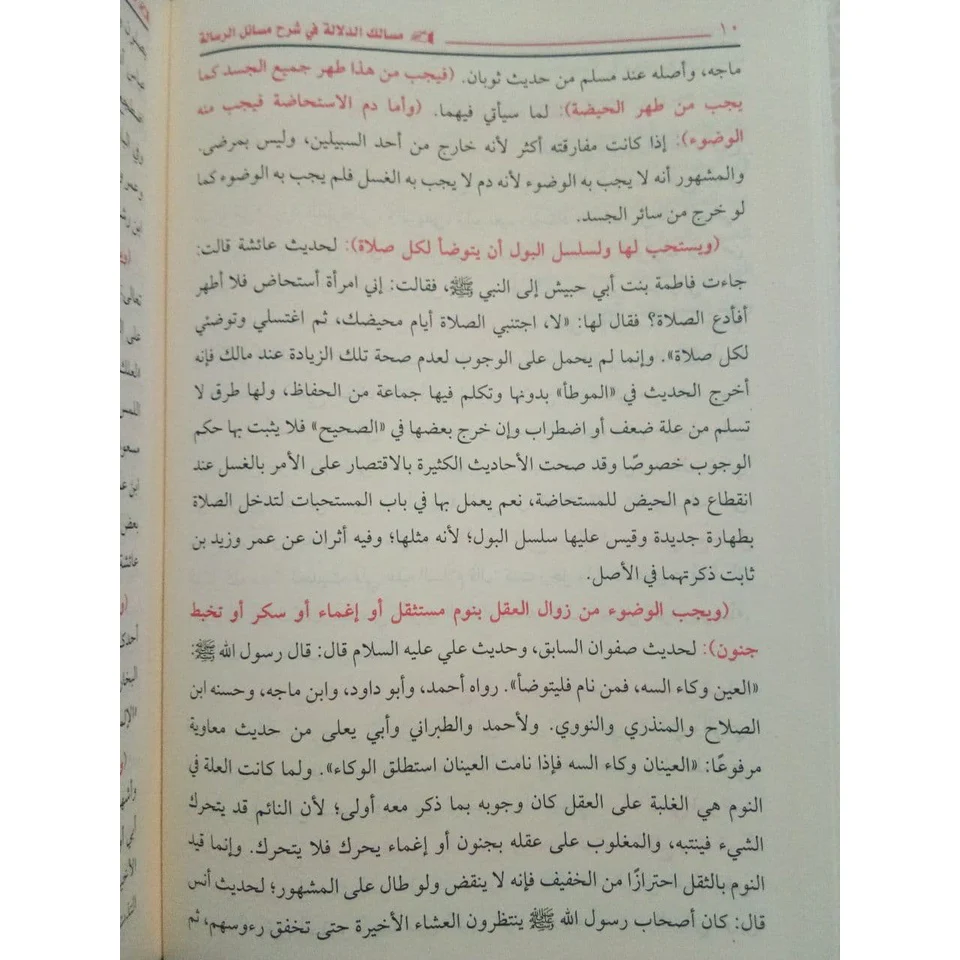 ١٠ مسالك الدلالة في شرح مسائل الرسالة
ماجه، وأصله عند مسلم من حديث ثوبان. (فيجب من هذا طهر جميع الجسد كما
يجب من طهر الحيضة): لما سيأتي فيهما. (وأما دم الاستحاضة فيجب منه
الوضوء): إذا كانت مفارقته أكثر لأنه خارج من أحد السبيلين، وليس بمرضى.
والمشهور أنه لا يجب به الوضوء لأنه دم لا يجب به الغسل فلم يجب به الوضوء كما
لو خرج من سائر الجسد.
(ويستحب لها ولسلسل البول أن يتوضأ لكل صلاة): لحديث عائشة قالت:
جاءت فاطمة بنت أبي حبيش إلى النبي ﷺ، فقالت: إني امرأة أستحاض فلا أطهر
أفأدع الصلاة؟ فقال لها: «لا، اجتنبي الصلاة أيام محيضك، ثم اغتسلي وتوضئي
لكل صلاة». وإنما لم يحمل على الوجوب لعدم صحة تلك الزيادة عند مالك فإنه
أخرج الحديث في «الموطأ» بدونها وتكلم فيها جماعة من الحفاظ، ولها طرق لا
تسلم من علة ضعف أو اضطراب وإن خرج بعضها في «الصحيح» فلا يثبت بها حكم
الوجوب خصوصًا وقد صحت الأحاديث الكثيرة بالاقتصار على الأمر بالغسل عند
انقطاع دم الحيض للمستحاضة، نعم يعمل بها في باب المستحبات لتدخل الصلاة
بطهارة جديدة وقيس عليها سلسل البول؛ لأنه مثلها؛ وفيه أثران عن عمر وزيد بن
ثابت ذكرتهما في الأصل.
(ويجب الوضوء من زوال العقل بنوم مستثقل أو إغماء أو سكر أو تخبط
جنون): لحديث صفوان السابق، وحديث علي عليه السلام قال: قال رسول الله ﷺ:
«العين وكاء السه، فمن نام فليتوضأ». رواه أحمد، وأبو داود، وابن ماجه، وحسنه ابن
الصلاح والمنذري والنووي. ولأحمد والطبراني وأبي يعلى من حديث معاوية
مرفوعًا: «العينان وكاء السه فإذا نامت العينان استطلق الوكاء». ولما كانت العلة في
النوم هي الغلبة على العقل كان وجوبه بما ذكر معه أولى؛ لأن النائم قد يتحرك
الشيء فينتبه، والمغلوب على عقله بجنون أو إغماء يحرك فلا يتحرك. وإنما قيد
النوم بالثقل احترازًا من الخفيف فإنه لا ينقض ولو طال على المشهور؛ لحديث أنس
قال: كان أصحاب رسول الله ﷺ ينتظرون العشاء الأخيرة حتى تخفق رءوسهم، ثم